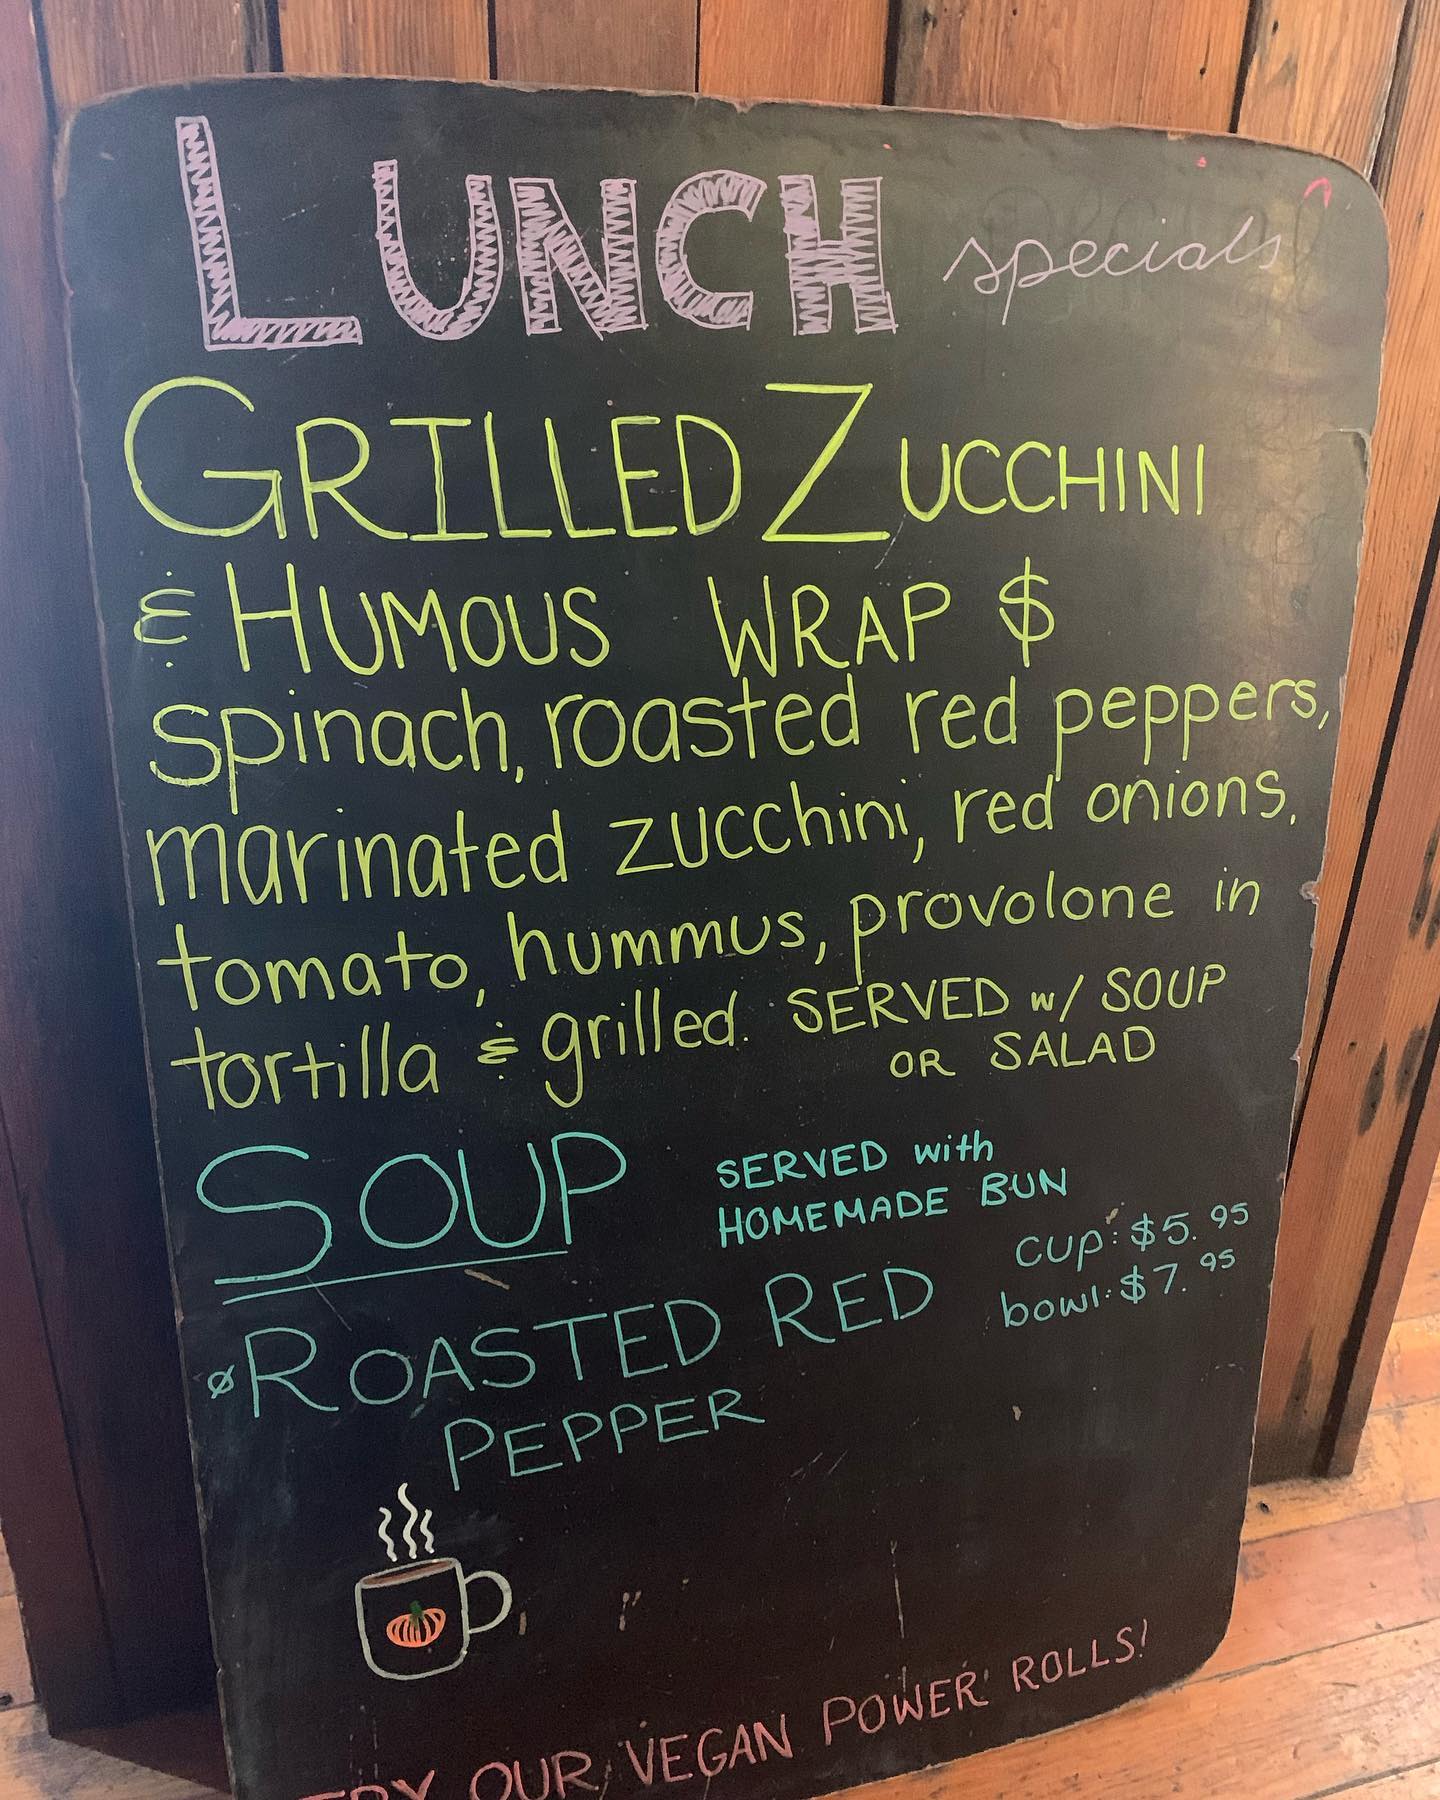 LUNCH specials
GRILLED ZUCCHINI
& HUMOUS WRAP $
spinach, roasted red peppers,
marinated zucchini, red onions,
tomato, hummus, provolone in
tortilla & grilled. SERVED w/ SOUP
OR SALAD
SOUP
SERVED with
HOMEMADE BUN
cup: $5.95
bowl: $7.95
ROASTED RED
PEPPER
TRY OUR VEGAN POWER ROLLS!